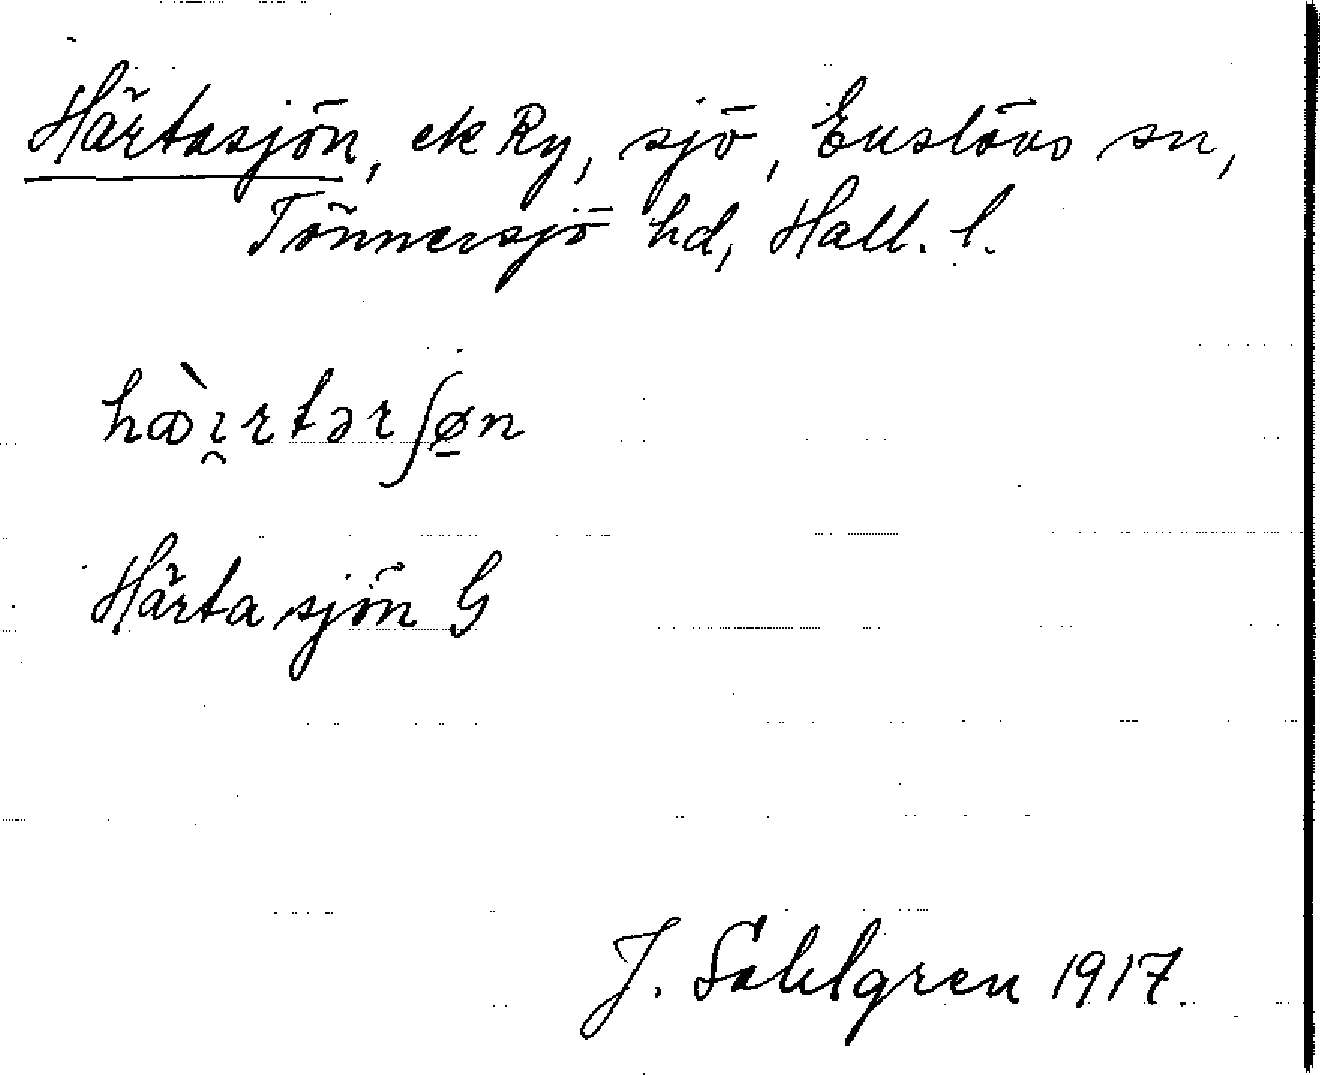 Härtasjön, ek Ry, sjö, Enslövs sn,
Tönnersjö hd, Hall. l.
Härtasjön G
J. Sahlgren 1917.